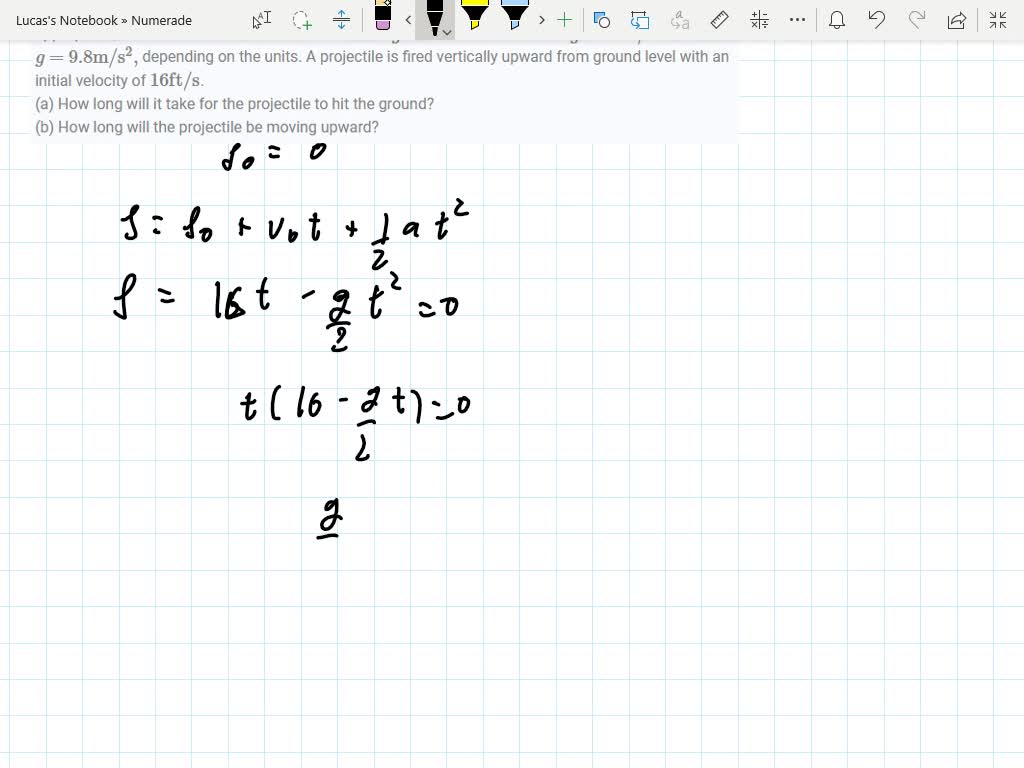 Lucas's Notebook » Numerade
g = 9.8m/s², depending on the units. A projectile is fired vertically upward from ground level with an
initial velocity of 16ft/s.
(a) How long will it take for the projectile to hit the ground?
(b) How long will the projectile be moving upward?
s₀ = 0
s = s₀ + v₀t + 1/2 at²
s = 16t - g/2 t² = 0
t(16 - g/2 t) = 0
g